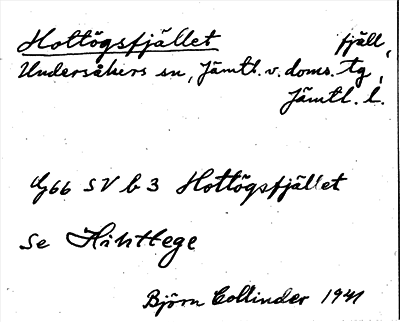 Hottögsfjället fjäll,
Undersåkers sn, Jämtl. v. doms. tg,
Jämtl. l.
G66 SV b 3 Hottögsfjället
se Hihttege
Björn Collinder 1941